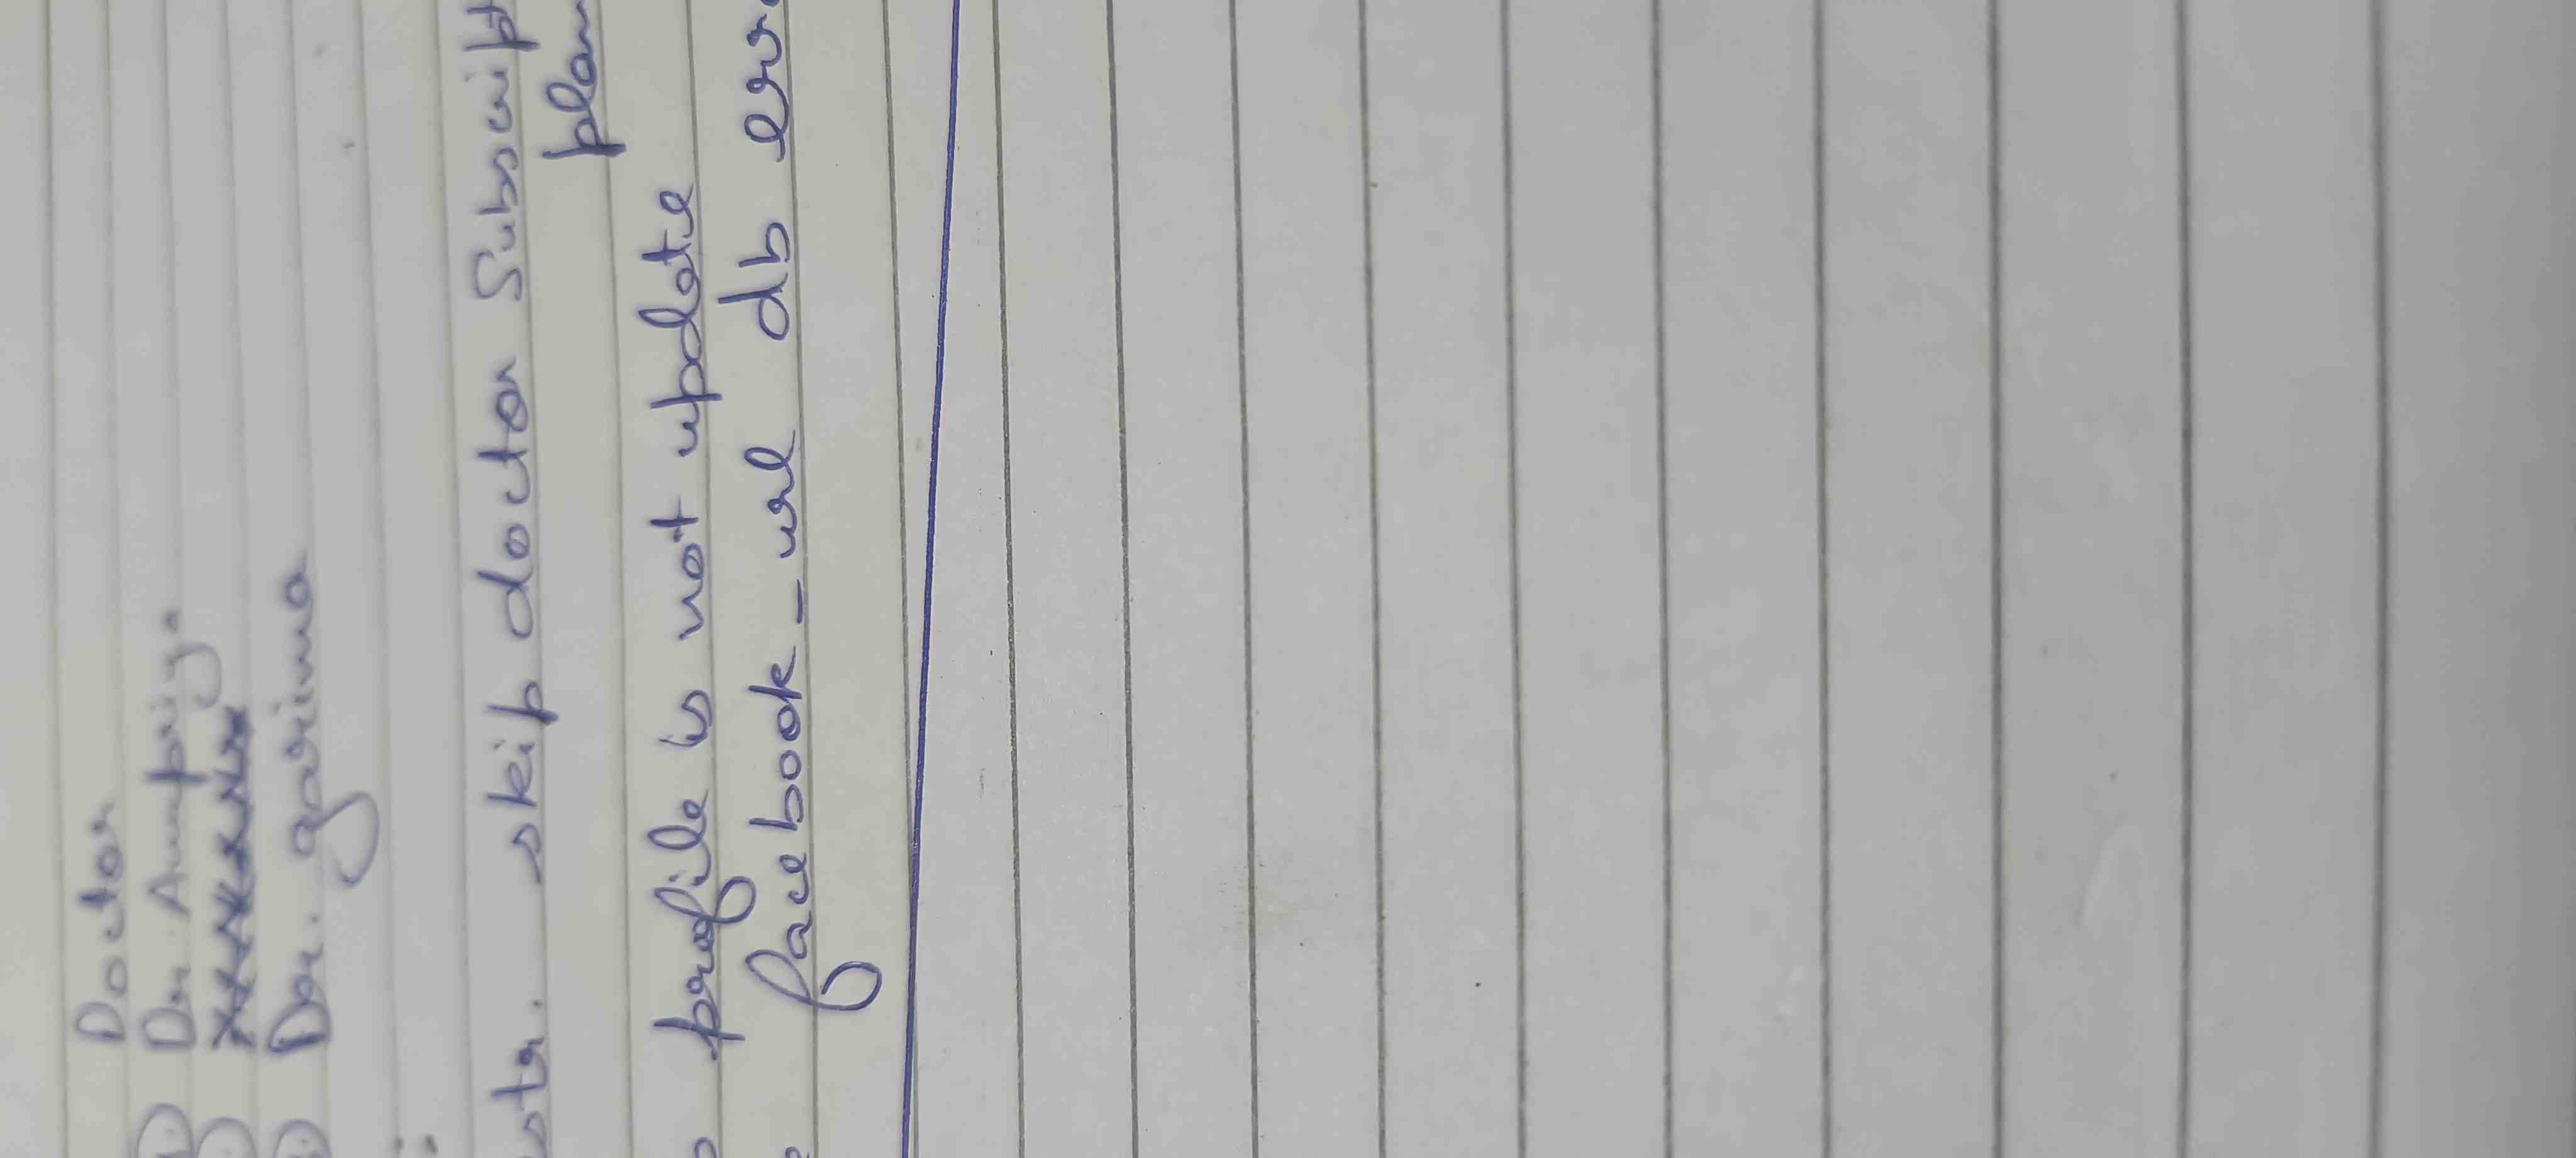 Doctor
① Dr Anupriya
③ Dr. garima
:
str. skip doctor Subscript
plan
profile is not update
facebook_url db erro